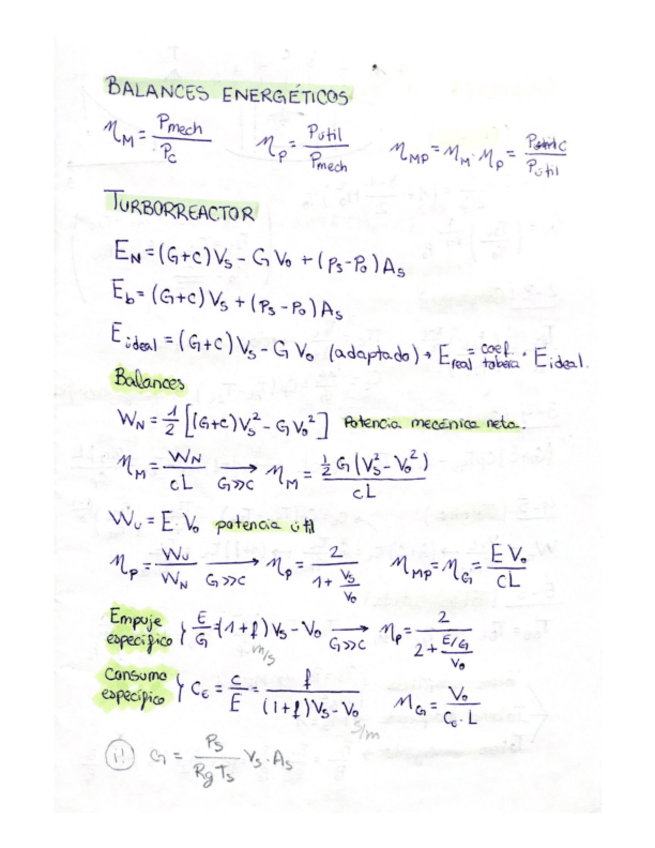 BALANCES ENERGÉTICOS
η_M = Pmech / Pc    η_p = Pútil / Pmech    η_MP = η_M · η_p = / Pútil
TURBORREACTOR
E_N = (G+c)V_s - G V_0 + (P_s - P_0)A_s
E_b = (G+c)V_s + (P_s - P_0)A_s
E_ideal = (G+c)V_s - G V_0 (adaptado) → E_real = coef tobera · E_ideal.
Balances
W_N = 1/2 [(G+c)V_s² - G V_0²] Potencia mecánica neta.
η_M = W_N / cL  G>>c →  η_M = 1/2 G(V_s² - V_0²) / cL
W_u = E · V_0 potencia útil
η_p = W_u / W_N  G>>c →  η_p = 2 / (1 + V_s/V_0)    η_MP = η_G = E V_0 / cL
Empuje específico } E/G = (1+f)V_s - V_0  m/s  G>>c →  η_p = 2 / (2 + (E/G)/V_0)
Consumo específico } C_E = c/E = f / ((1+f)V_s - V_0)  s/m    η_G = V_0 / (C_E · L)
(!!) G = P_s / (R_g T_s) V_s · A_s